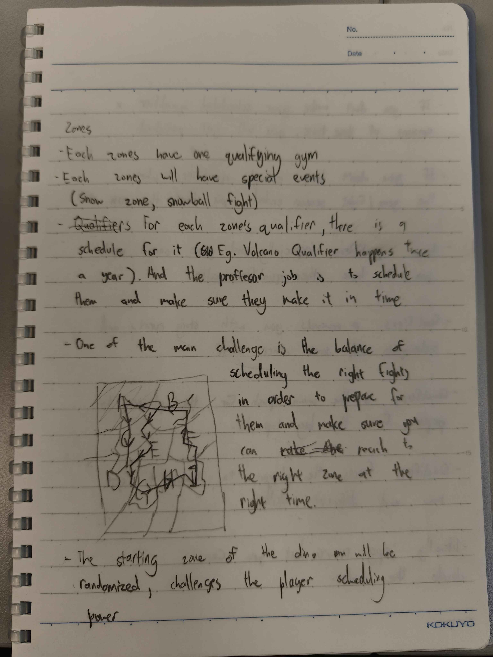 No.
Date
Zones
- Each zones have one qualifying gym
- Each zones will have special events
(Snow zone, snowball fight)
- Qualifiers For each zone's qualifier, there is a
schedule for it (Eg. Volcano Qualifier happens twice
a year). And the proffesor job is to schedule
them and make sure they make it in time
- One of the main challenge is the balance of
scheduling the right fights
in order to prepare for
them and make sure you
can reach to
the right zone at the
right time.
B
D
- The starting zone of the will be
randomized, challenges the player scheduling
power
KOKUYO